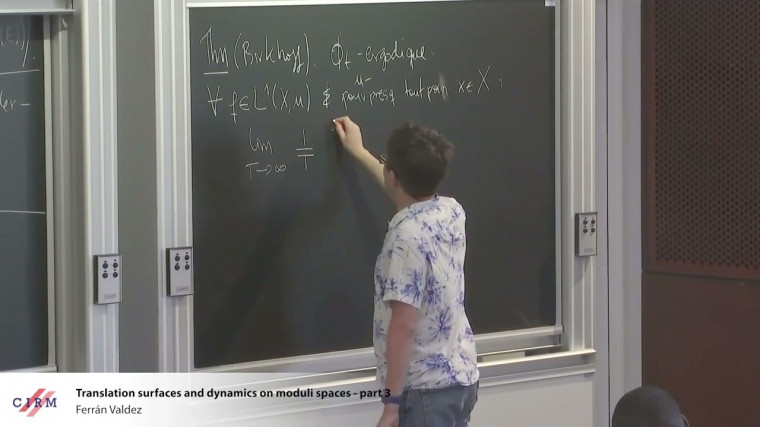 Thm (Birkhoff). ϕt - ergodique.
∀ f∈L¹(X,μ) & pour μ- presq tout point x∈X :
lim 1/T
T→∞
CIRM
Translation surfaces and dynamics on moduli spaces - part 3
Ferrán Valdez